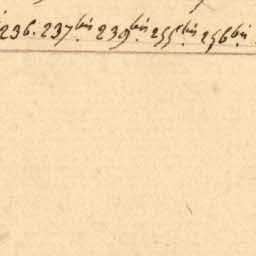 236. 237 bis. 239 bis. 255 bis. 256 bis.